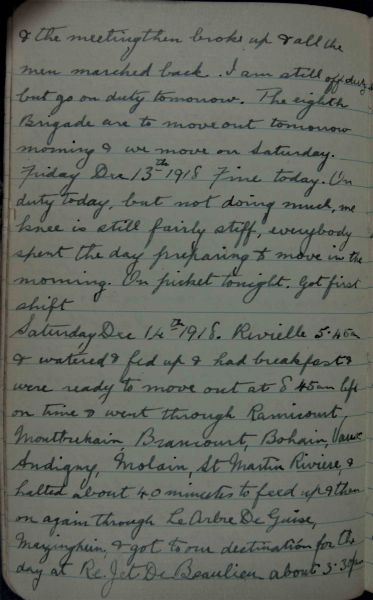 & the meeting then broke up & all the
men marched back. I am still off duty
but go on duty tomorrow. The eighth
Brigade are to move out tomorrow
morning & we move on Saturday.
Friday Dec 13th 1918 Fine today. On
duty today, but not doing much, me
knee is still fairly stiff, everybody
spent the day preparing to move in the
morning. On picket tonight. Got first
shift
Saturday Dec 14th 1918. Revielle 5.45am
& watered & fed up & had breakfast &
were ready to move out at 8.45am left
on time & went through Ramicourt,
Montbrehain Brancourt, Bohain, Vaux
Andigny, Molain, St Martin Riviere, &
halted about 40 minutes to feed up & then
on again through Le Arbre De Guise,
Mazinghein, & got to our destination for the
day at Re. Jet De Beaulieu about 3.30pm